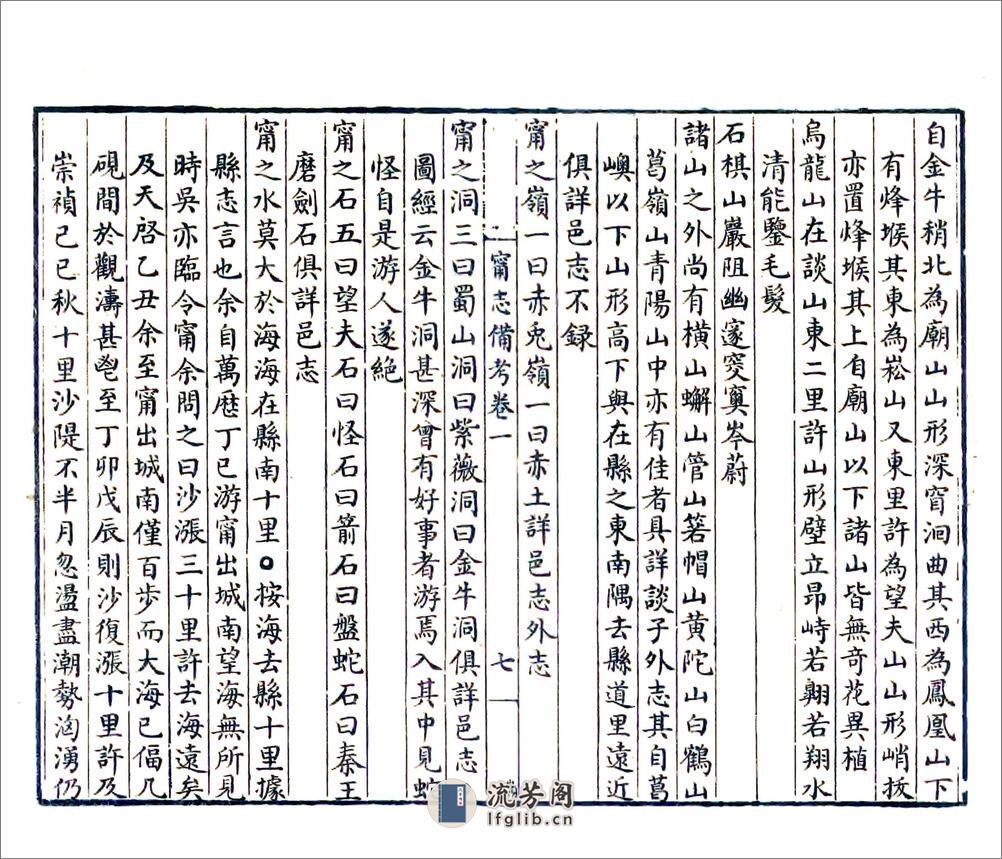 自金牛稍北為廟山山形深窅洄曲其西為鳳凰山下
有烽堠其東為崧山又東里許為望夫山山形峭拔
亦置烽堠其上自廟山以下諸山皆無奇花異植
烏龍山在談山東二里許山形壁立昂峙若翺若翔水
清能鑒毛髮
石棋山巖阻幽邃窔窺岑蔚
諸山之外尚有橫山蠏山管山箬帽山黄陀山白鶴山
葛嶺山青陽山中亦有佳者具詳談子外志其自葛
嶴以下山形高下與在縣之東南隅去縣道里遠近
俱詳邑志不録
甯之嶺一曰赤兎嶺一曰赤土詳邑志外志
甯志備考卷一
七
甯之洞三曰蜀山洞曰紫薇洞曰金牛洞俱詳邑志
圖經云金牛洞甚深曾有好事者游焉入其中見蛇
怪自是游人遂絶
甯之石五曰望夫石曰怪石曰箭石曰盤蛇石曰秦王
磨劍石俱詳邑志
甯之水莫大於海海在縣南十里〇按海去縣十里據
縣志言也余自萬厯丁巳游甯出城南望海無所見
時吳亦臨令甯余問之曰沙漲三十里許去海遠矣
及天啓乙丑余至甯出城南僅百歩而大海已偪几
硯間於觀濤甚鬯至丁卯戊辰則沙復漲十里許及
崇禎己巳秋十里沙隄不半月忽盪盡潮勢洶湧仍
流芳阁
lfglib.cn